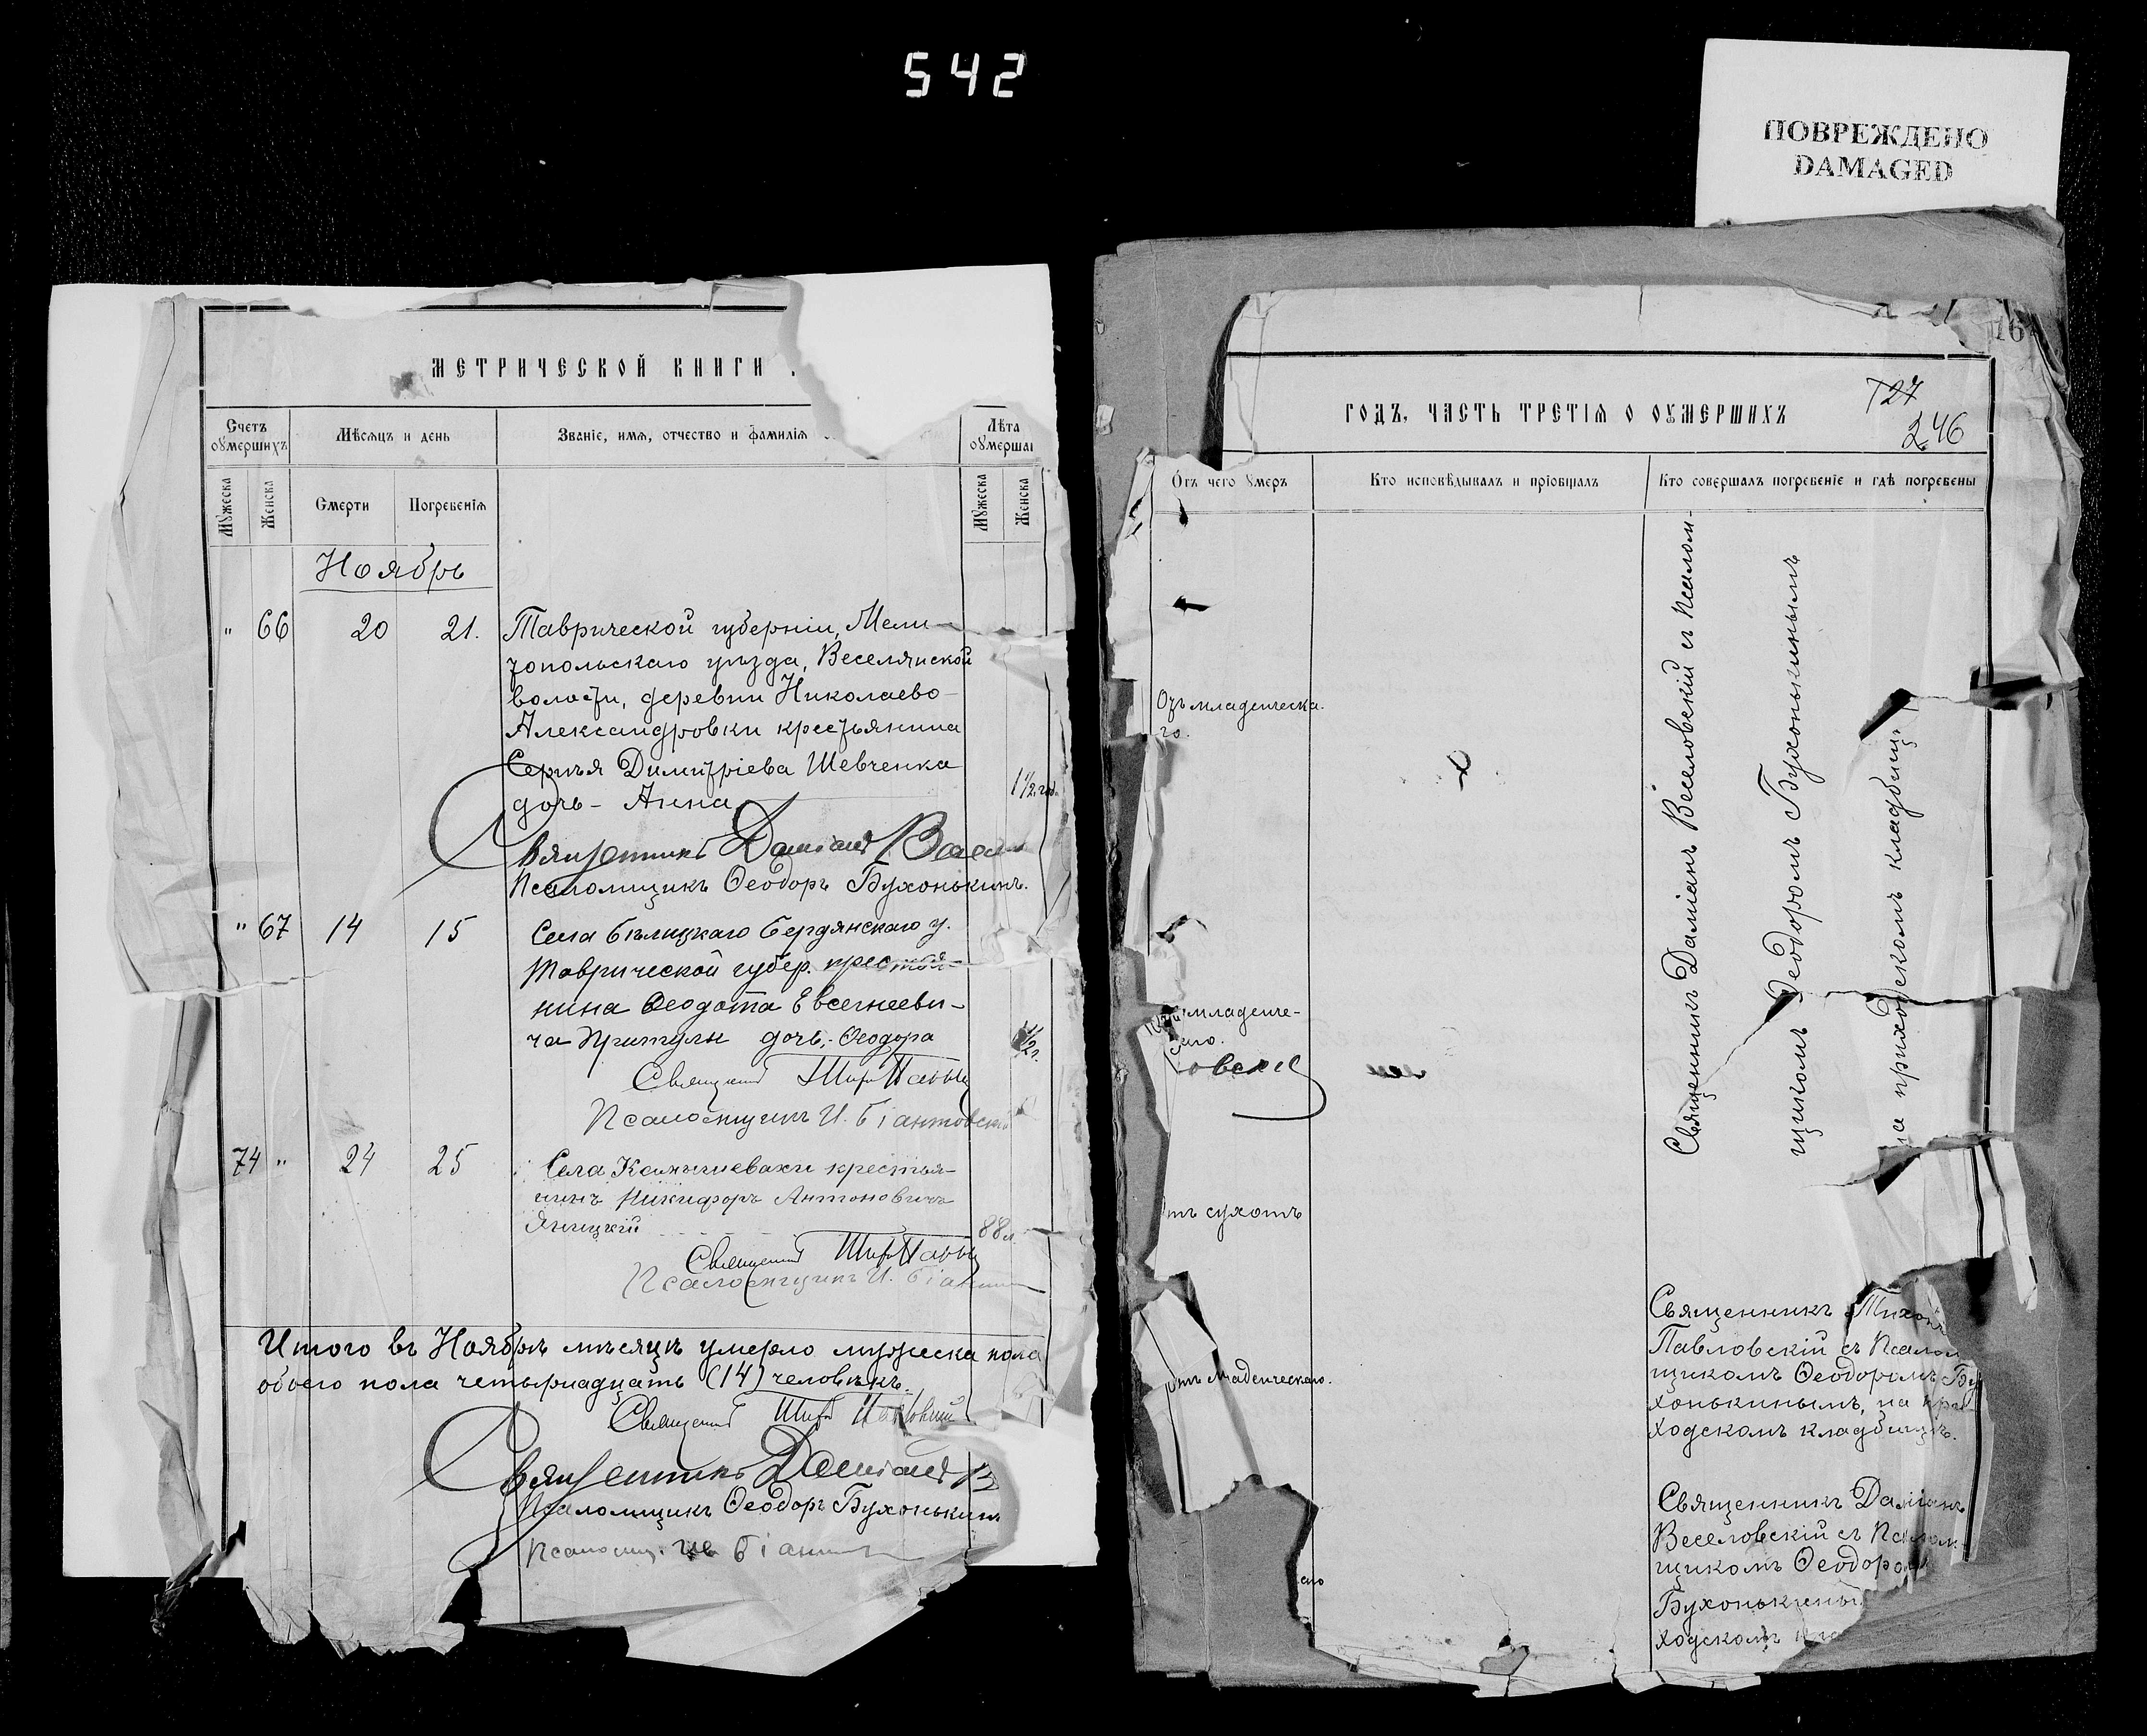 542
ПОВРЕЖДЕНО
DAMAGED
МЕТРИЧЕСКОЙ КНИГИ
Счетъ оумершихъ
Мѣсяцъ и день
Званіе, имя, отчество и фамилія
Лѣта оумерша
Мужеска
Женска
Смерти
Погребенія
Мужеска
Женска
Ноябрь
" 66 20 21. Таврической губерніи, Мели-
топольскаго уѣзда, Веселянской
волости, деревни Николаево-
Александровки крестьянина
Сергѣя Димитріева Шевченка
дочь - Анна. 1 1/2 год.
Священникъ Даміанъ
Псаломщикъ Ѳеодоръ Бухонькинъ.
" 67 14 15 Села Бѣлицкаго Бердянскаго у.
Таврической губер. крестья-
нина Ѳеодота Евсегнееви-
ча Притулы дочь,- Ѳеодора 1/2 г.
Священникъ
Псаломщикъ И. Біантовскі
74 " 24 25 Села крестья-
нинъ Никифоръ Антоновичъ
88 л.
Священникъ
Псаломщикъ И.
Итого въ Ноябрѣ мѣсяцѣ умерло мужеска пола
обоего пола четырнадцать (14) человѣкъ.
Священникъ
Священникъ Даміанъ
Псаломщикъ Ѳеодоръ Бухонькинъ
Псаломщ.
16
ГОДЪ, ЧАСТЬ ТРЕТІЯ О ОУМЕРШИХЪ
727
246
Отъ чего умеръ
Кто исповѣдывалъ и пріобщалъ
Кто совершалъ погребеніе и гдѣ погребены
Отъ младенческа-
го.
младенче-
скаго.
овскій
тъ сухотъ
отъ младенческаго.
Священникъ Даміанъ Веселовскій съ Псалом-
щикомъ Ѳеодоромъ Бухонькинымъ
на приходскомъ кладбищѣ
Священникъ Тихонъ
Павловскій съ Псалом
щикомъ Ѳеодоромъ Бу
хонькинымъ, на при
ходскомъ кладбищѣ.
Священникъ Даміанъ
Веселовскій съ Псалом-
щикомъ Ѳеодоро
Бухонькины
ходскомъ